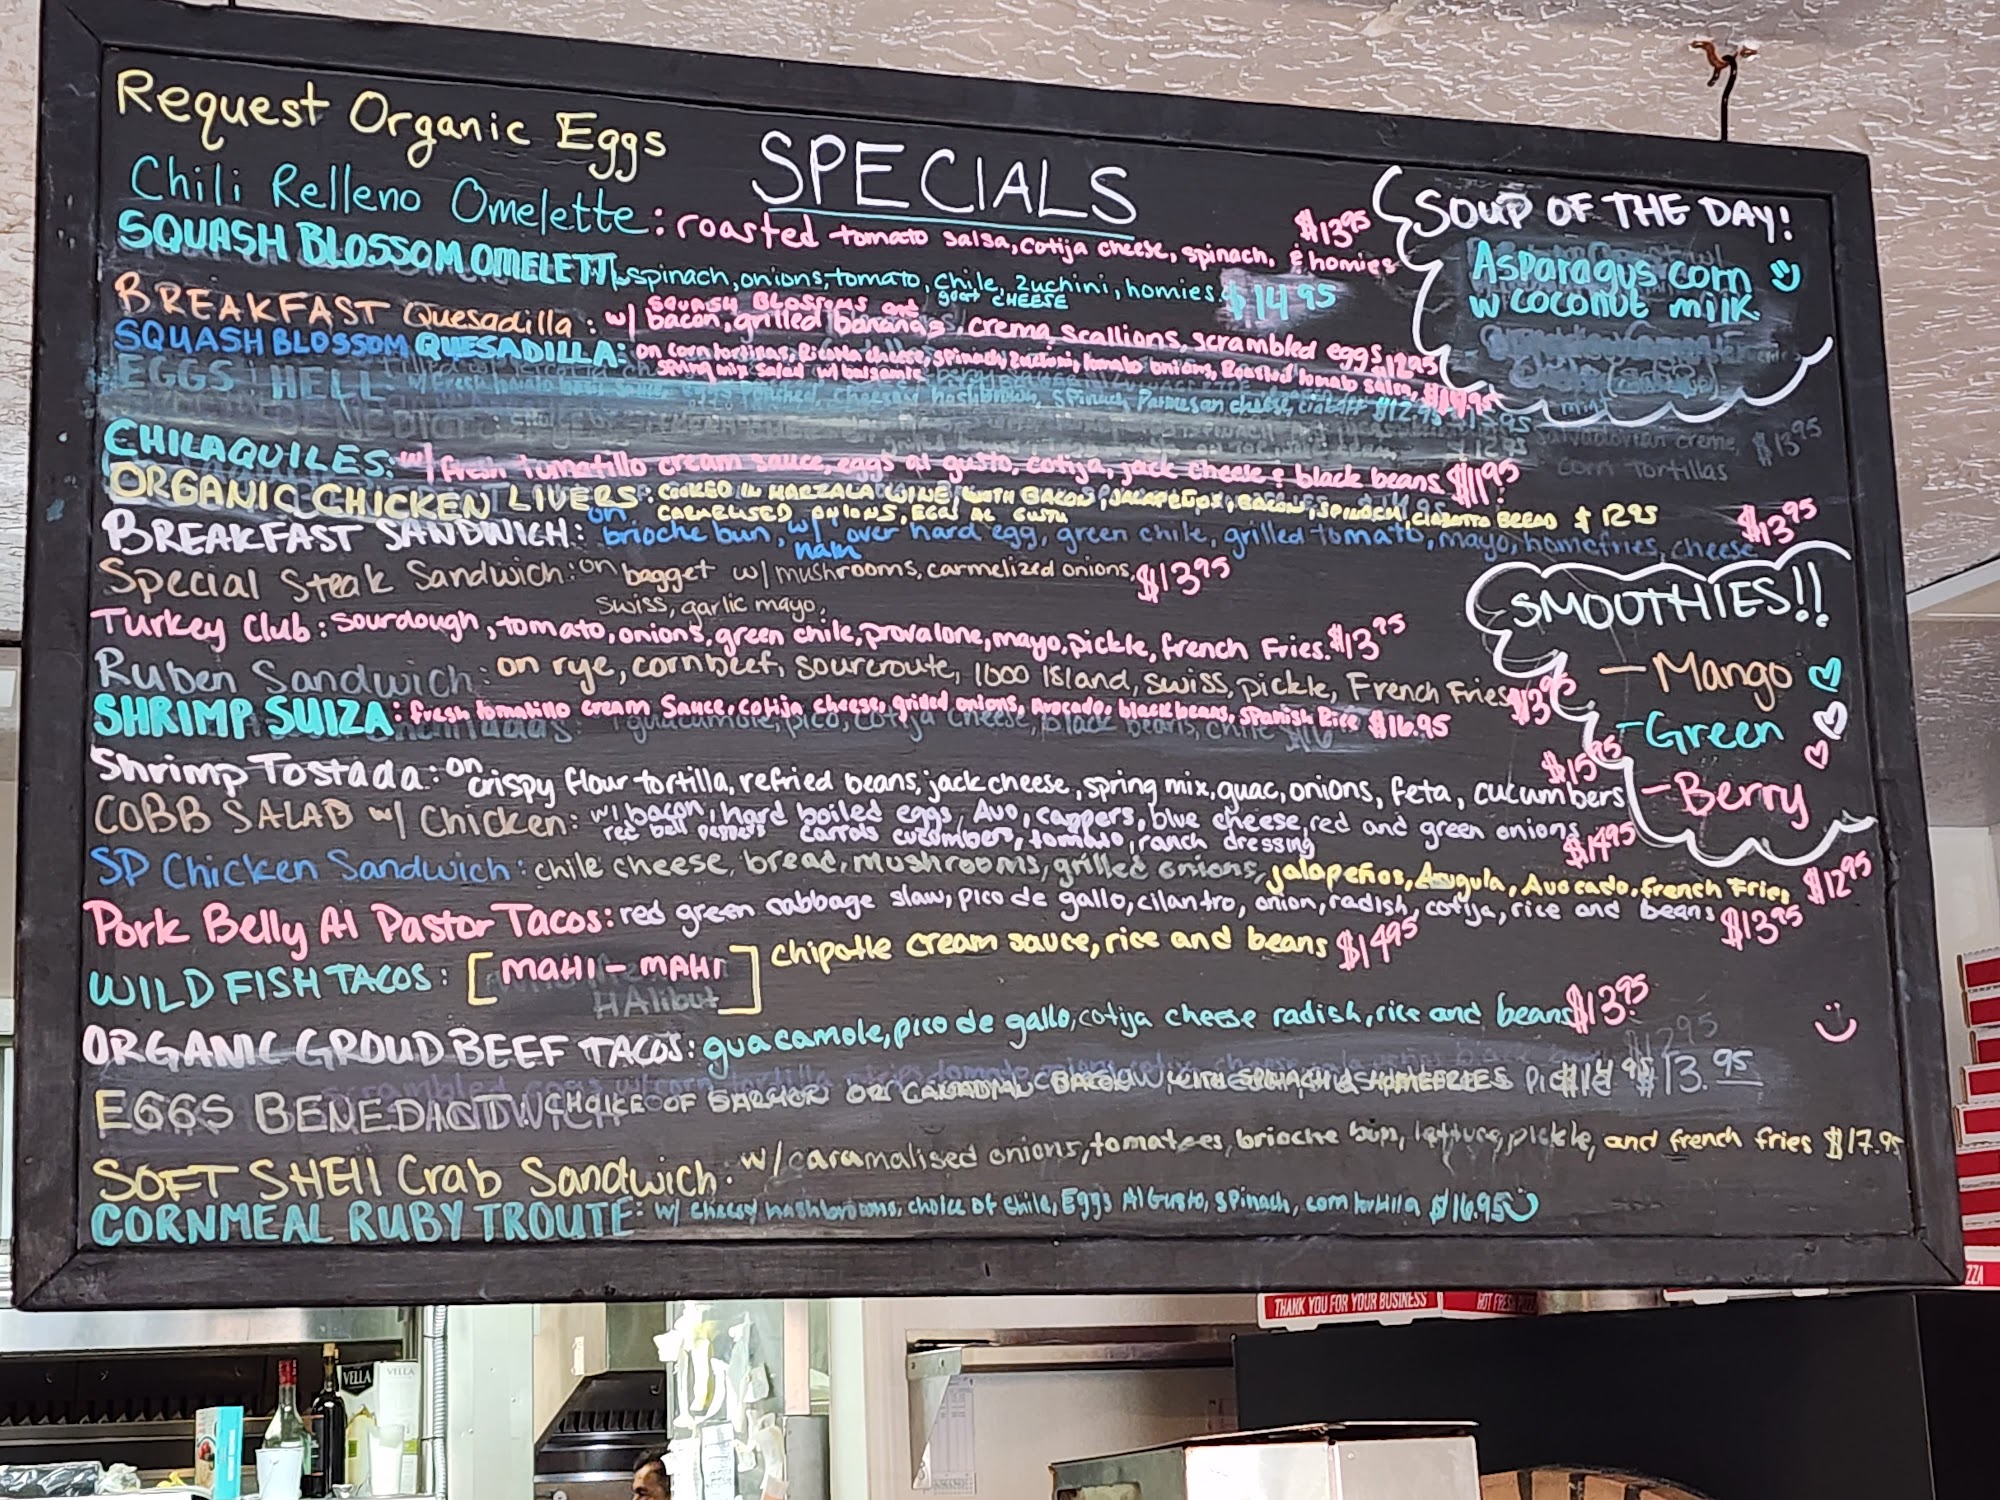 Request Organic Eggs
SPECIALS
Chili Relleno Omelette: roasted tomato salsa, cotija cheese, spinach, & homies $13.95
SQUASH BLOSSOM OMELETT spinach, onions, tomato, chile, zuchini, homies. $14.95
SQUASH BLOSSOMS and goat CHEESE
BREAKFAST Quesadilla: w/ bacon, grilled bananas, crema, scallions, scrambled eggs $12.95
SQUASH BLOSSOM QUESADILLA: on corn tortillas, Ricotta cheese, spinach, zuchini, tomato onions, Roasted tomato salsa, $14.95
spring mix salad w/ balsamic
EGGS HELL
CHILAQUILES: w/ fresh tomatillo cream sauce, eggs al gusto, cotija, jack cheese & black beans $11.95
ORGANIC CHICKEN LIVERS: COOKED IN MARZALA WINE WITH BACON, JALAPEÑOS, BACON, SPINACH, CIABATTA BREAD $12.95
CARMELISED ONIONS, EGGS AL GUSTU
BREAKFAST SANDWICH: on brioche bun, w/ ham over hard egg, green chile, grilled tomato, mayo, homefries, cheese $13.95
Special Steak Sandwich: on bagget w/ mushrooms, carmelized onions, $13.95
swiss, garlic mayo,
Turkey Club: sourdough, tomato, onions, green chile, provalone, mayo, pickle, french Fries. $13.95
Ruben Sandwich: on rye, cornbeef, sourcroute, 1000 Island, swiss, pickle, French Fries $13.95
SHRIMP SUIZA: fresh tomatillo cream Sauce, cotija cheese, grilled onions, Avocado, black beans, Spanish Rice $16.95
Shrimp Tostada: on crispy flour tortilla, refried beans, jack cheese, spring mix, guac, onions, feta, cucumbers $15.95
COBB SALAD w/ Chicken: w/ bacon, hard boiled eggs, Avo, cappers, blue cheese, red and green onions $14.95
red bell peppers carrots cucumbers, tomato, ranch dressing
SP Chicken Sandwich: chile cheese, bread, mushrooms, grilled onions, jalapeños, Arugula, Avocado, french Fries $12.95
Pork Belly Al Pastor Tacos: red green cabbage slaw, pico de gallo, cilantro, onion, radish, cotija, rice and beans $13.95
WILD FISH TACOS: [MAHI-MAHI HAlibut] chipotle cream sauce, rice and beans $14.95
ORGANIC GROUD BEEF TACOS: guacamole, pico de gallo, cotija cheese radish, rice and beans $13.95
EGGS BENEDICT CHOICE OF OR CANADIAN BACON WITH SPINACH & HOMEFRIES $13.95
SOFT SHEll Crab Sandwich. w/ caramalised onions, tomatoes, brioche bun, lettuce, pickle, and french fries $17.95
CORNMEAL RUBY TROUTE: w/ cheesy hashbrowns, choice of chile, Eggs Al Gusto, spinach, corn tortilla $16.95
SOUP OF THE DAY!
Asparagus corn
w coconut milk.
salvadorian creme, $13.95
corn tortillas
SMOOTHIES!!
- Mango
- Green
- Berry
THANK YOU FOR YOUR BUSINESS
HOT FRESH
VELLA
VELLA